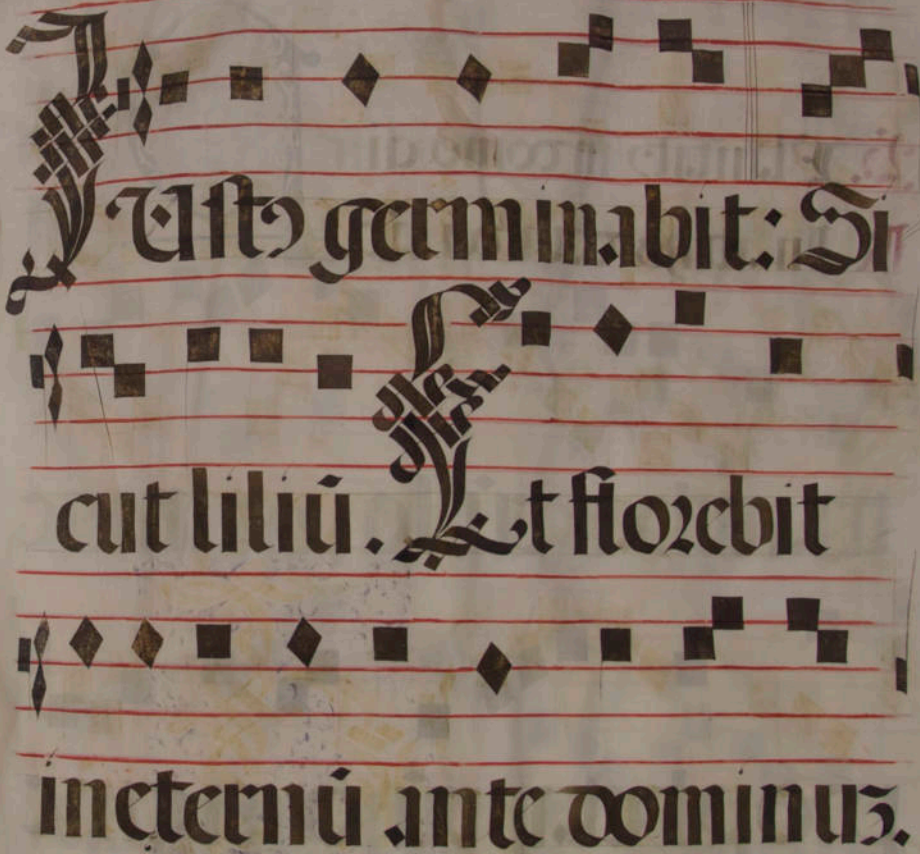 JUstꝰ germinabit: Si
cut liliū. Et florebit
in eternū ante dominuꝫ.